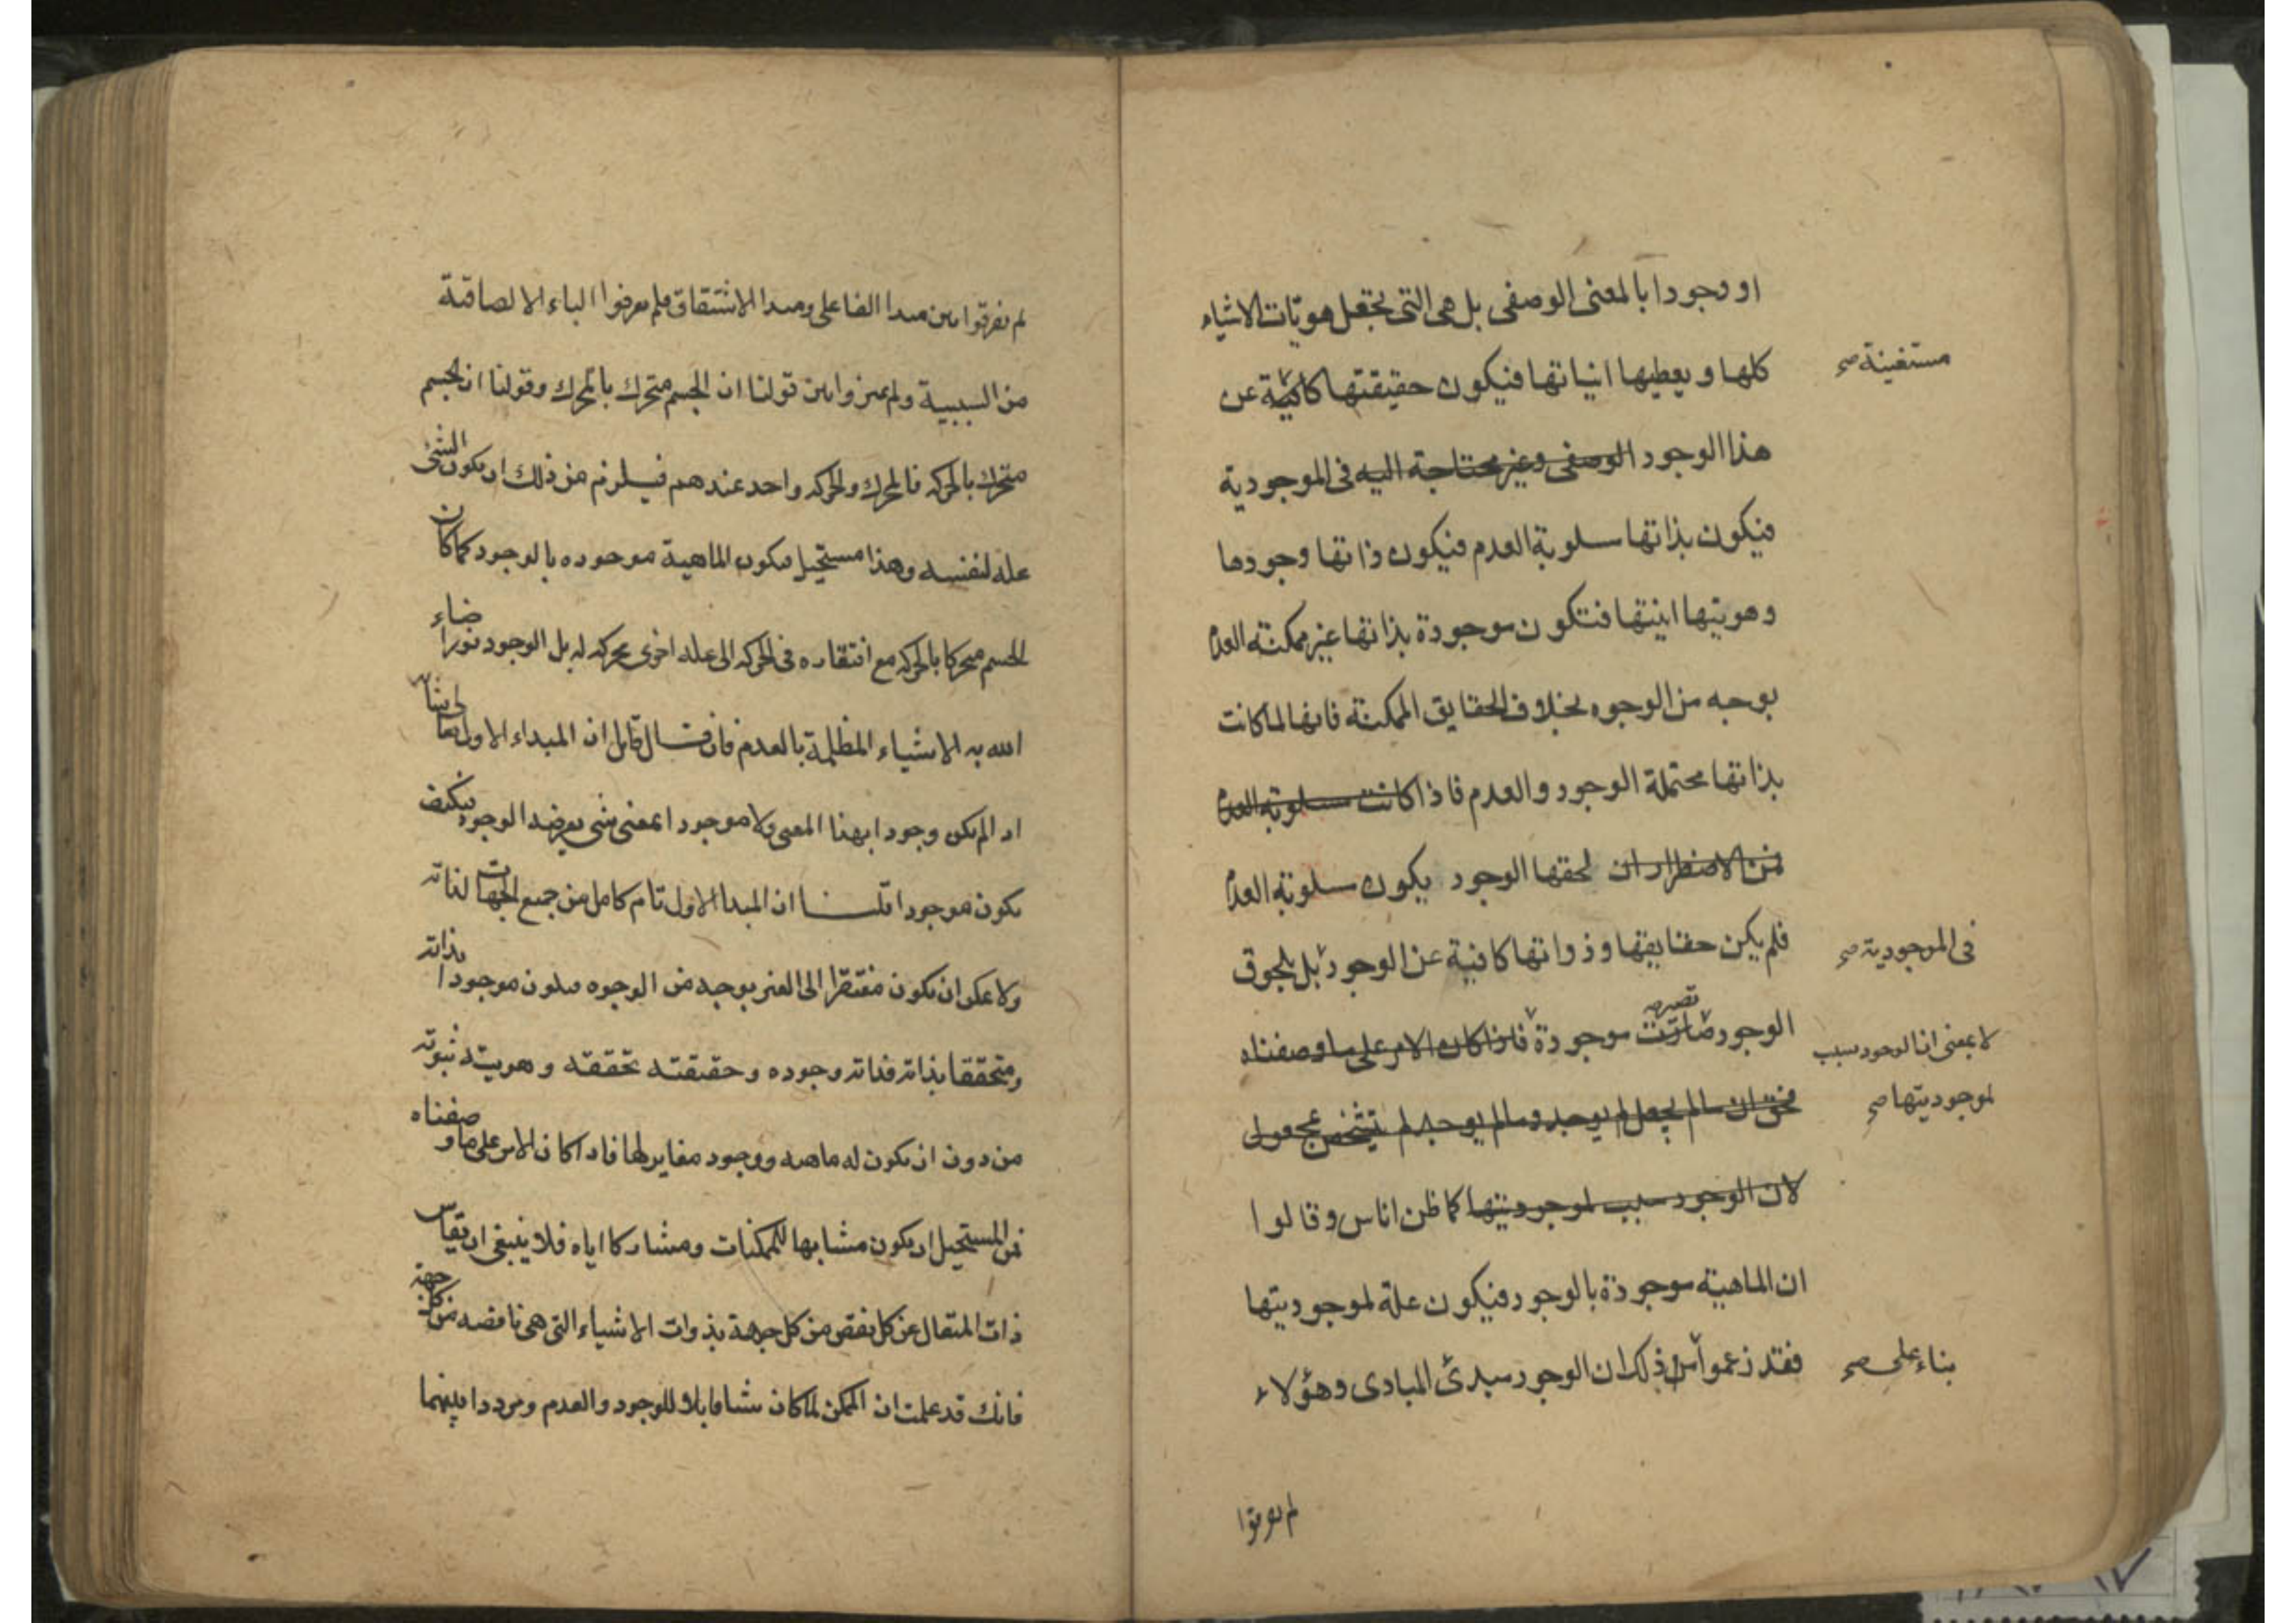 او وجودا بالمعنى الوصفى بل هى التى تجعل هويّات الاشياء
كلها و يعطيها انياتها فيكون حقيقتها كافية عن
مستغنية صح
هذا الوجود الوصفى وغير محتاجة اليه فى الموجودية
فيكون بذاتها مسلوبة العدم فيكون ذاتها وجودها
وهويتها انيتها فتكون موجودة بذاتها غير ممكنة العدم
بوجه من الوجوه بخلاف الحقايق الممكنة فانها لما كانت
بذاتها محتملة الوجود والعدم فاذا كانت مسلوبة العدم
من الاضطرار ان لحقها الوجود يكون مسلوبة العدم
فلم يكن حقايقها وذواتها كافية عن الوجود بل بلحوق
فى الموجودية صح
الوجود صارت تصير موجودة فاذا كان الامر على ما وصفناه
لا بمعنى ان الوجود سبب
فحق ان ما لم يجعل لم يوجد وما لم يوجد لم يتشخص
لموجوديتها صح
لان الوجود سبب لموجوديتها كما ظن اناس وقالوا
ان الماهية موجودة بالوجود فيكون علة لموجوديتها
فقد زعموا من ذلك ان الوجود مبدئ المبادى وهؤلاء
بناء على صح
لم يفرقوا
لم يفرقوا بين مبدا الفاعلى ومبدا الاشتقاق فلم يعرفوا الباء الالصاقية
من السببية ولم يميزوا بين قولنا ان الجسم متحرك بالمحرك وقولنا ان الجسم
متحرك بالحركه فالمحرك والحركه واحد عندهم فيلزم من ذلك ان يكون الشئ
علة لنفسه وهذا مستحيل فيكون الماهية موجوده بالوجود كما كان
الجسم متحركا بالحركه مع افتقاره فى الحركه الى علة اخرى محركه له بل الوجود نور اضاء
الله به الاشياء المظلمة بالعدم فان قال قايل ان المبداء الاول تعالى شانه
اذا لم يكن وجودا بهذا المعنى ولا موجودا بمعنى شى يعرضه الوجود فكيف
يكون موجودا قلنا ان المبدا الاول تام كامل من جميع الجهات لذاته
ولا يمكن ان يكون مفتقرا الى الغير بوجه من الوجوه فيكون موجودا بذاته
ومتحققا بذاته فذاته وجوده وحقيقته تحققه وهويته ثبوته
من دون ان يكون له ماهيه ووجود مغاير لها فاذا كان الامر على ما وصفناه
فمن المستحيل ان يكون مشابها للممكنات ومشاركا اياه فلا ينبغى ان يقاس
ذات المتعال عن كل نقص من كل جهة بذوات الاشياء التى هى ناقصه من كل جهة
فانك قد علمت ان الممكن لما كان قابلا للوجود والعدم ومرددا بينهما